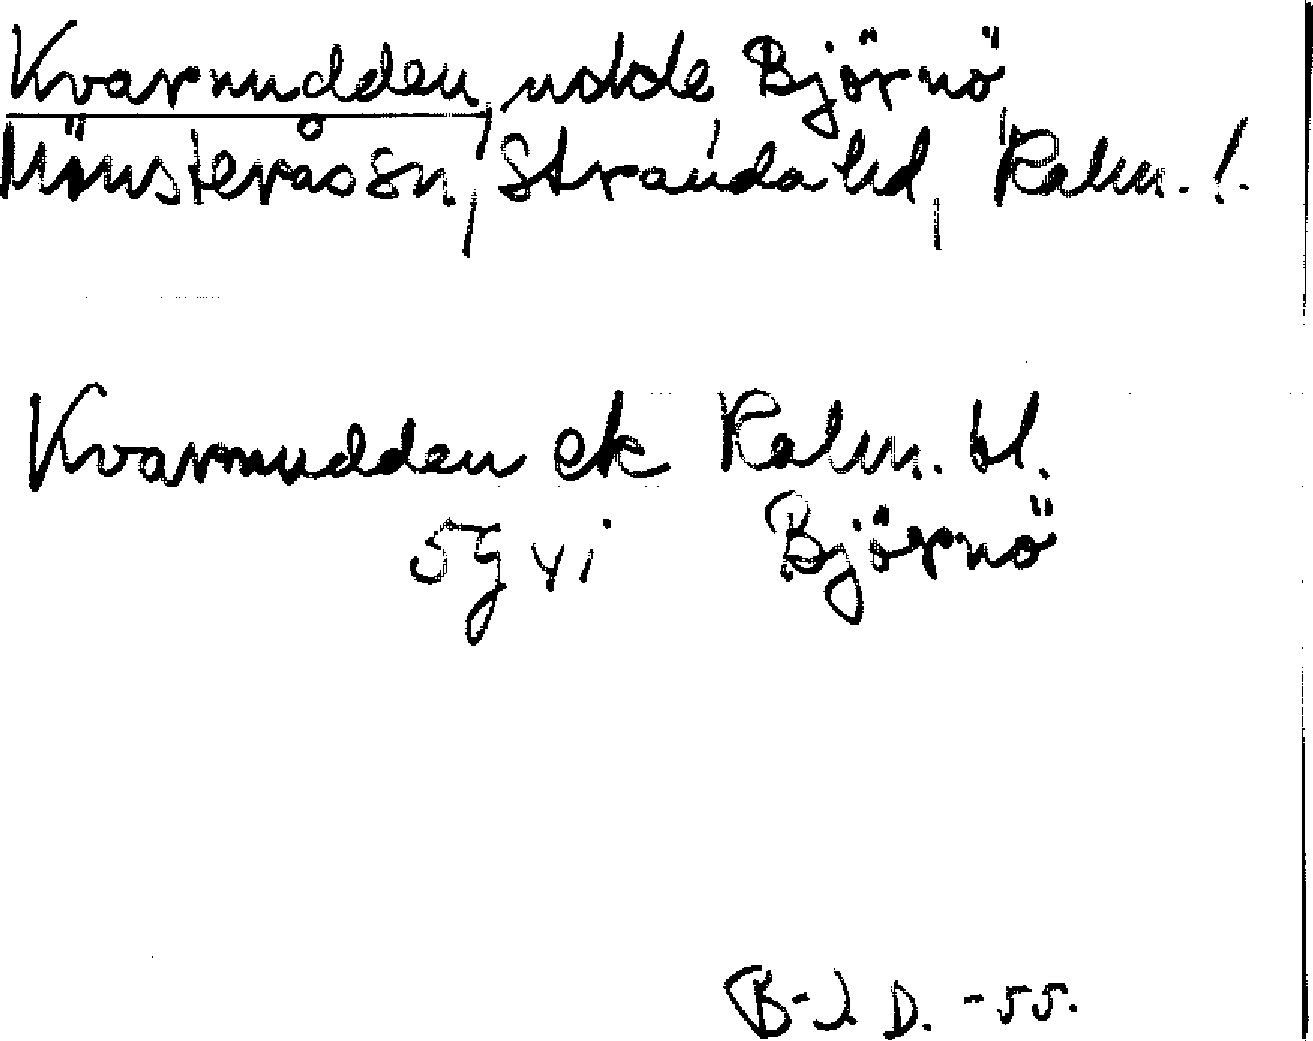 Kvarnudden, udde Björnö,
Mönsterås sn, Stranda hd, Kalm. l.
Kvarnudden ek Kalm. bl.
5g yi Björnö
B-J. D. -55.